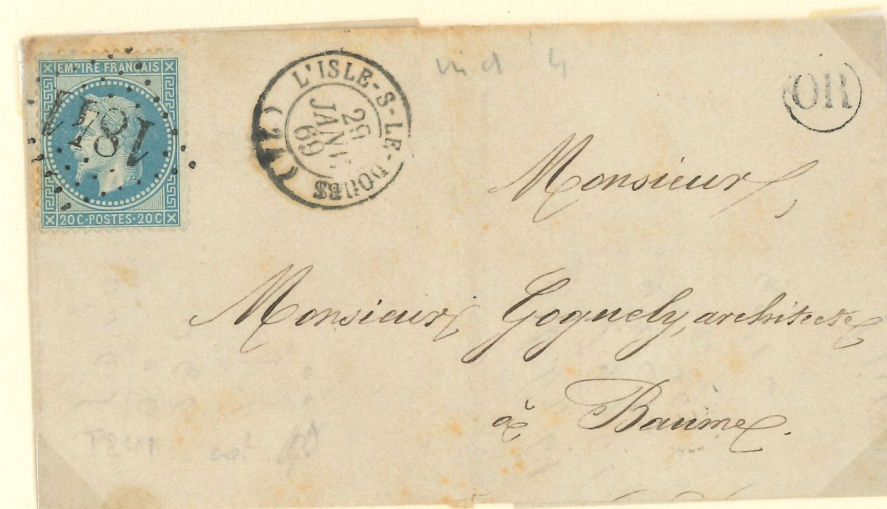 EMPIRE FRANÇAIS
20C-POSTES-20C
L'ISLE-S-LE-DOUBS
29
JANV.
69
OR
Monsieur,
Monsieur Goguely, architecte
à Baume.